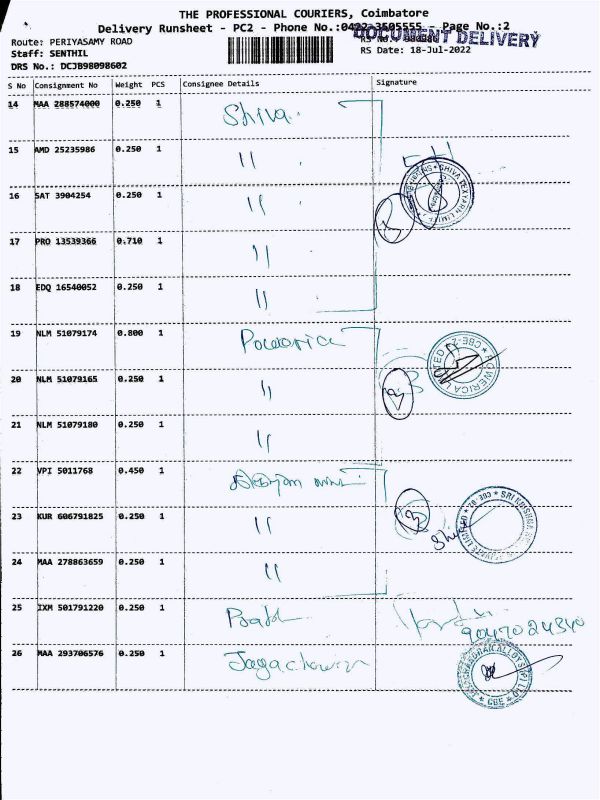 THE PROFESSIONAL COURIERS, Coimbatore
Delivery Runsheet - PC2 - Phone No.:0422-3505555 - Page No.:2
DOCUMENT DELIVERY
Route: PERIYASAMY ROAD
Staff: SENTHIL
RS Date: 18-Jul-2022
DRS No.: DCJB98098602
S No Consignment No Weight PCS Consignee Details Signature
14 MAA 288574000 0.250 1 Shiva
15 AMD 25235986 0.250 1 "
16 SAT 3904254 0.250 1 "
17 PRO 13539366 0.710 1 "
18 EDQ 16540052 0.250 1 "
19 NLM 51079174 0.800 1 Powerica
20 NLM 51079165 0.250 1 "
21 NLM 51079180 0.250 1 "
22 VPI 5011768 0.450 1
23 KUR 606791825 0.250 1 "
24 MAA 278863659 0.250 1 "
25 IXM 501791220 0.250 1
26 MAA 293706576 0.250 1
SHIVA TEXYARN LIMITED
POWERICA LIMITED CBE-2
SRI KRISHNA PRIVATE LIMITED CBE